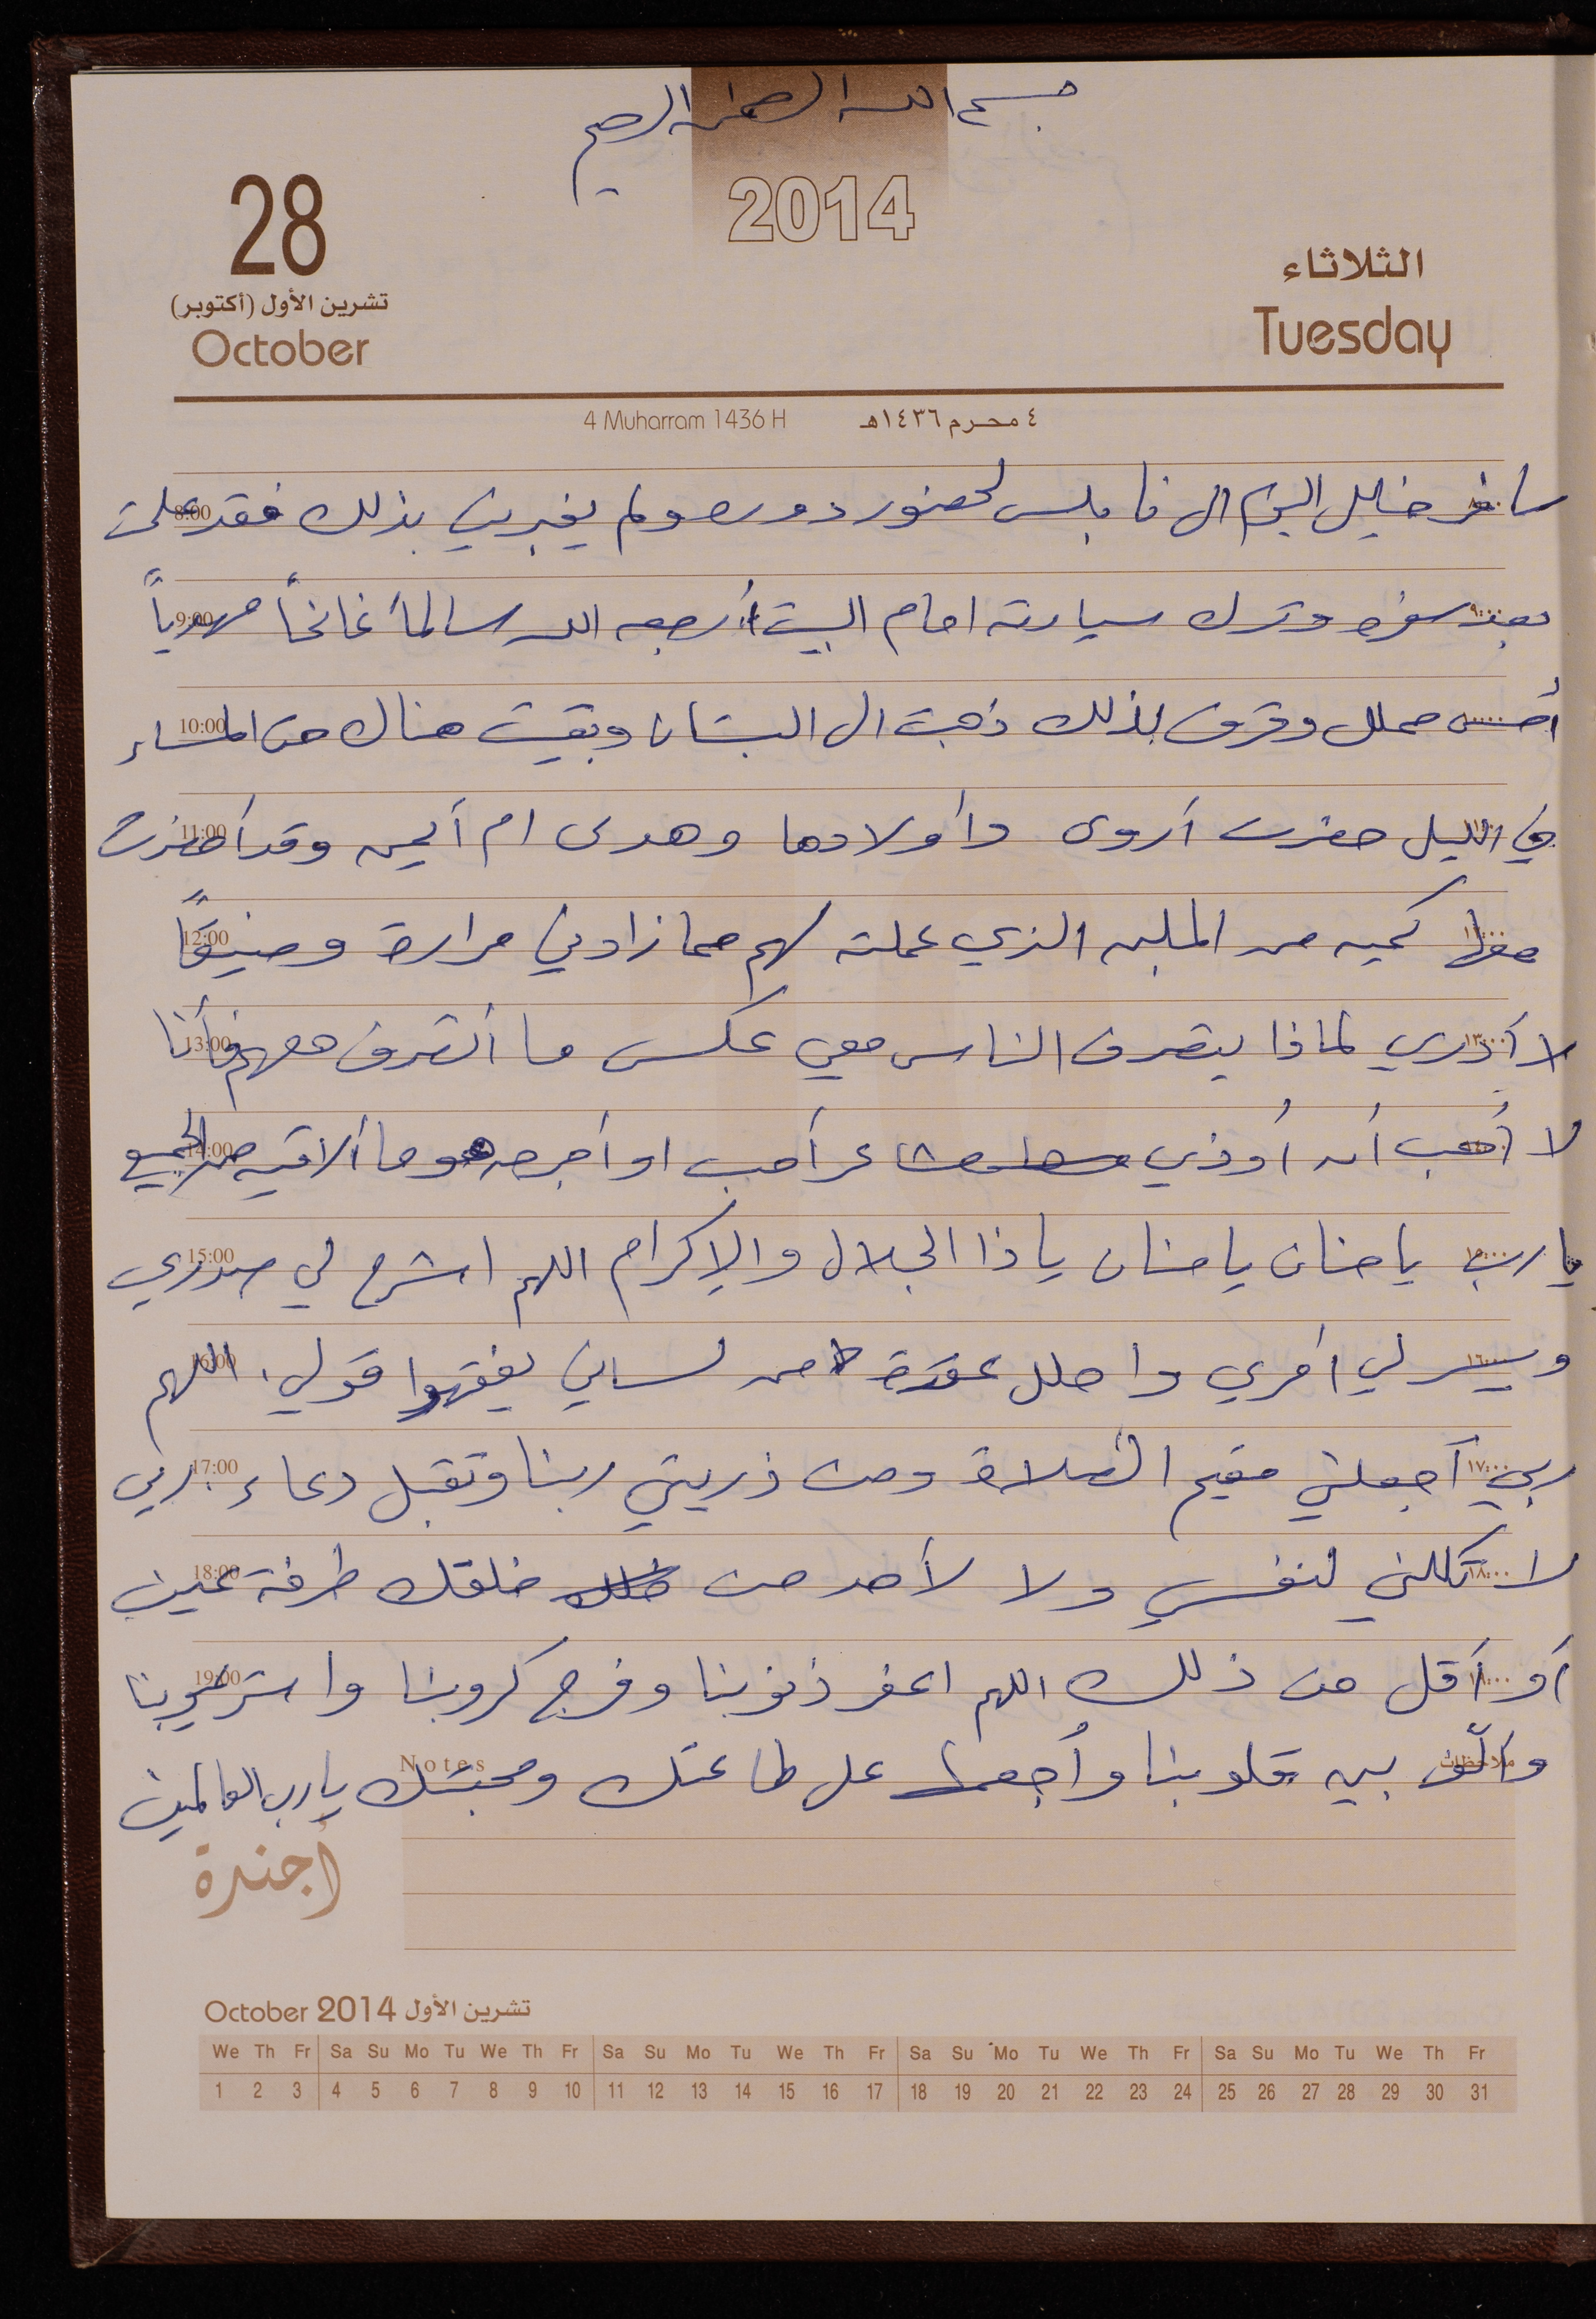 بسم الله الرحمن الرحيم
2014
28
تشرين الأول (أكتوبر)
October
الثلاثاء
Tuesday
4 Muharram 1436 H ٤ محرم ١٤٣٦هـ
سافر خليل اليوم الى نابلس لحضور دوره ولم يخبرني بذلك فقد علمت 8:00
٩:٠٠ بعد سفره وترك سيارته امام البيت أرجعه الله سالماً غانماً مهدياً 9:00
أحس بملل وقرف لذلك ذهبت الى البستان وبقيت هناك حتى المساء 10:00
في الليل حضرت أروى وأولادها وهدى ام أيمن وقد أحضرت 11:00
معها كميه من الملبن الذي عملته لهم مما زادني مرارة وضيقاً 12:00
١٣:٠٠ لا أدري لماذا يتصرف الناس معي عكس ما أتصرف معهم فأنا 13:00
لا أحب أن أوذي مشاعر أحد او أجرحه وما ألاقيه من الجميع 14:00
١٥:٠٠ يا رب يا حنان يا منان يا ذا الجلال والإكرام اللهم اشرح لي صدري 15:00
١٦:٠٠ ويسر لي أمري واحلل عقدة من لساني يفقهوا قولي. اللهم 16:00
١٧:٠٠ ربي أجعلني مقيم الصلاة ومن ذريتي ربنا وتقبل دعاء. ربي 17:00
١٨:٠٠ لا تكلني لنفسي ولا لأحد من خلقك طرفة عين 18:00
أو أقل من ذلك اللهم اغفر ذنوبنا وفرج كروبنا واستر عيوبنا 19:00
ملاحظات وألّف بين قلوبنا وأجمعنا على طاعتك ومحبتك يا رب العالمين Notes
أجندة
October 2014 تشرين الأول
We Th Fr Sa Su Mo Tu We Th Fr Sa Su Mo Tu We Th Fr Sa Su Mo Tu We Th Fr Sa Su Mo Tu We Th Fr
1 2 3 4 5 6 7 8 9 10 11 12 13 14 15 16 17 18 19 20 21 22 23 24 25 26 27 28 29 30 31